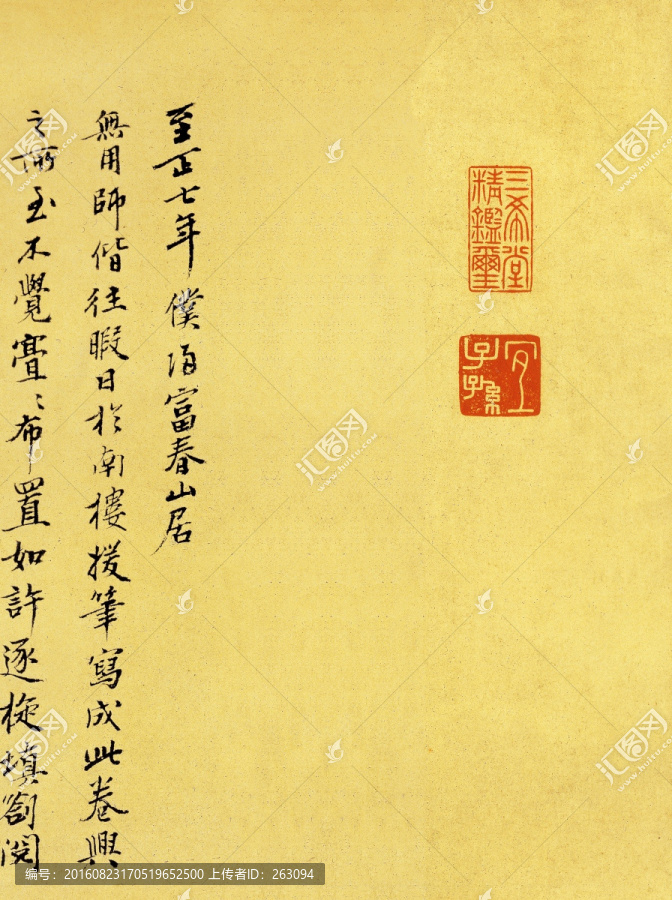 三希堂
精鑑璽
宜
子孫
至正七年僕歸富春山居
無用師偕往暇日於南樓援筆寫成此卷興
之所至不覺亹〻布置如許逐旋填劄閱
汇图网
www.huitu.com
编号:20160823170519652500 上传者ID:263094